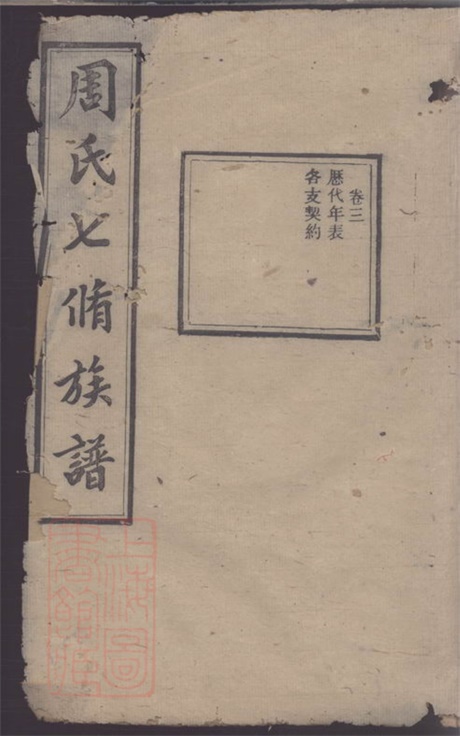 周氏七脩族譜
卷三
歷代年表
各支契約
上海圖
書館藏